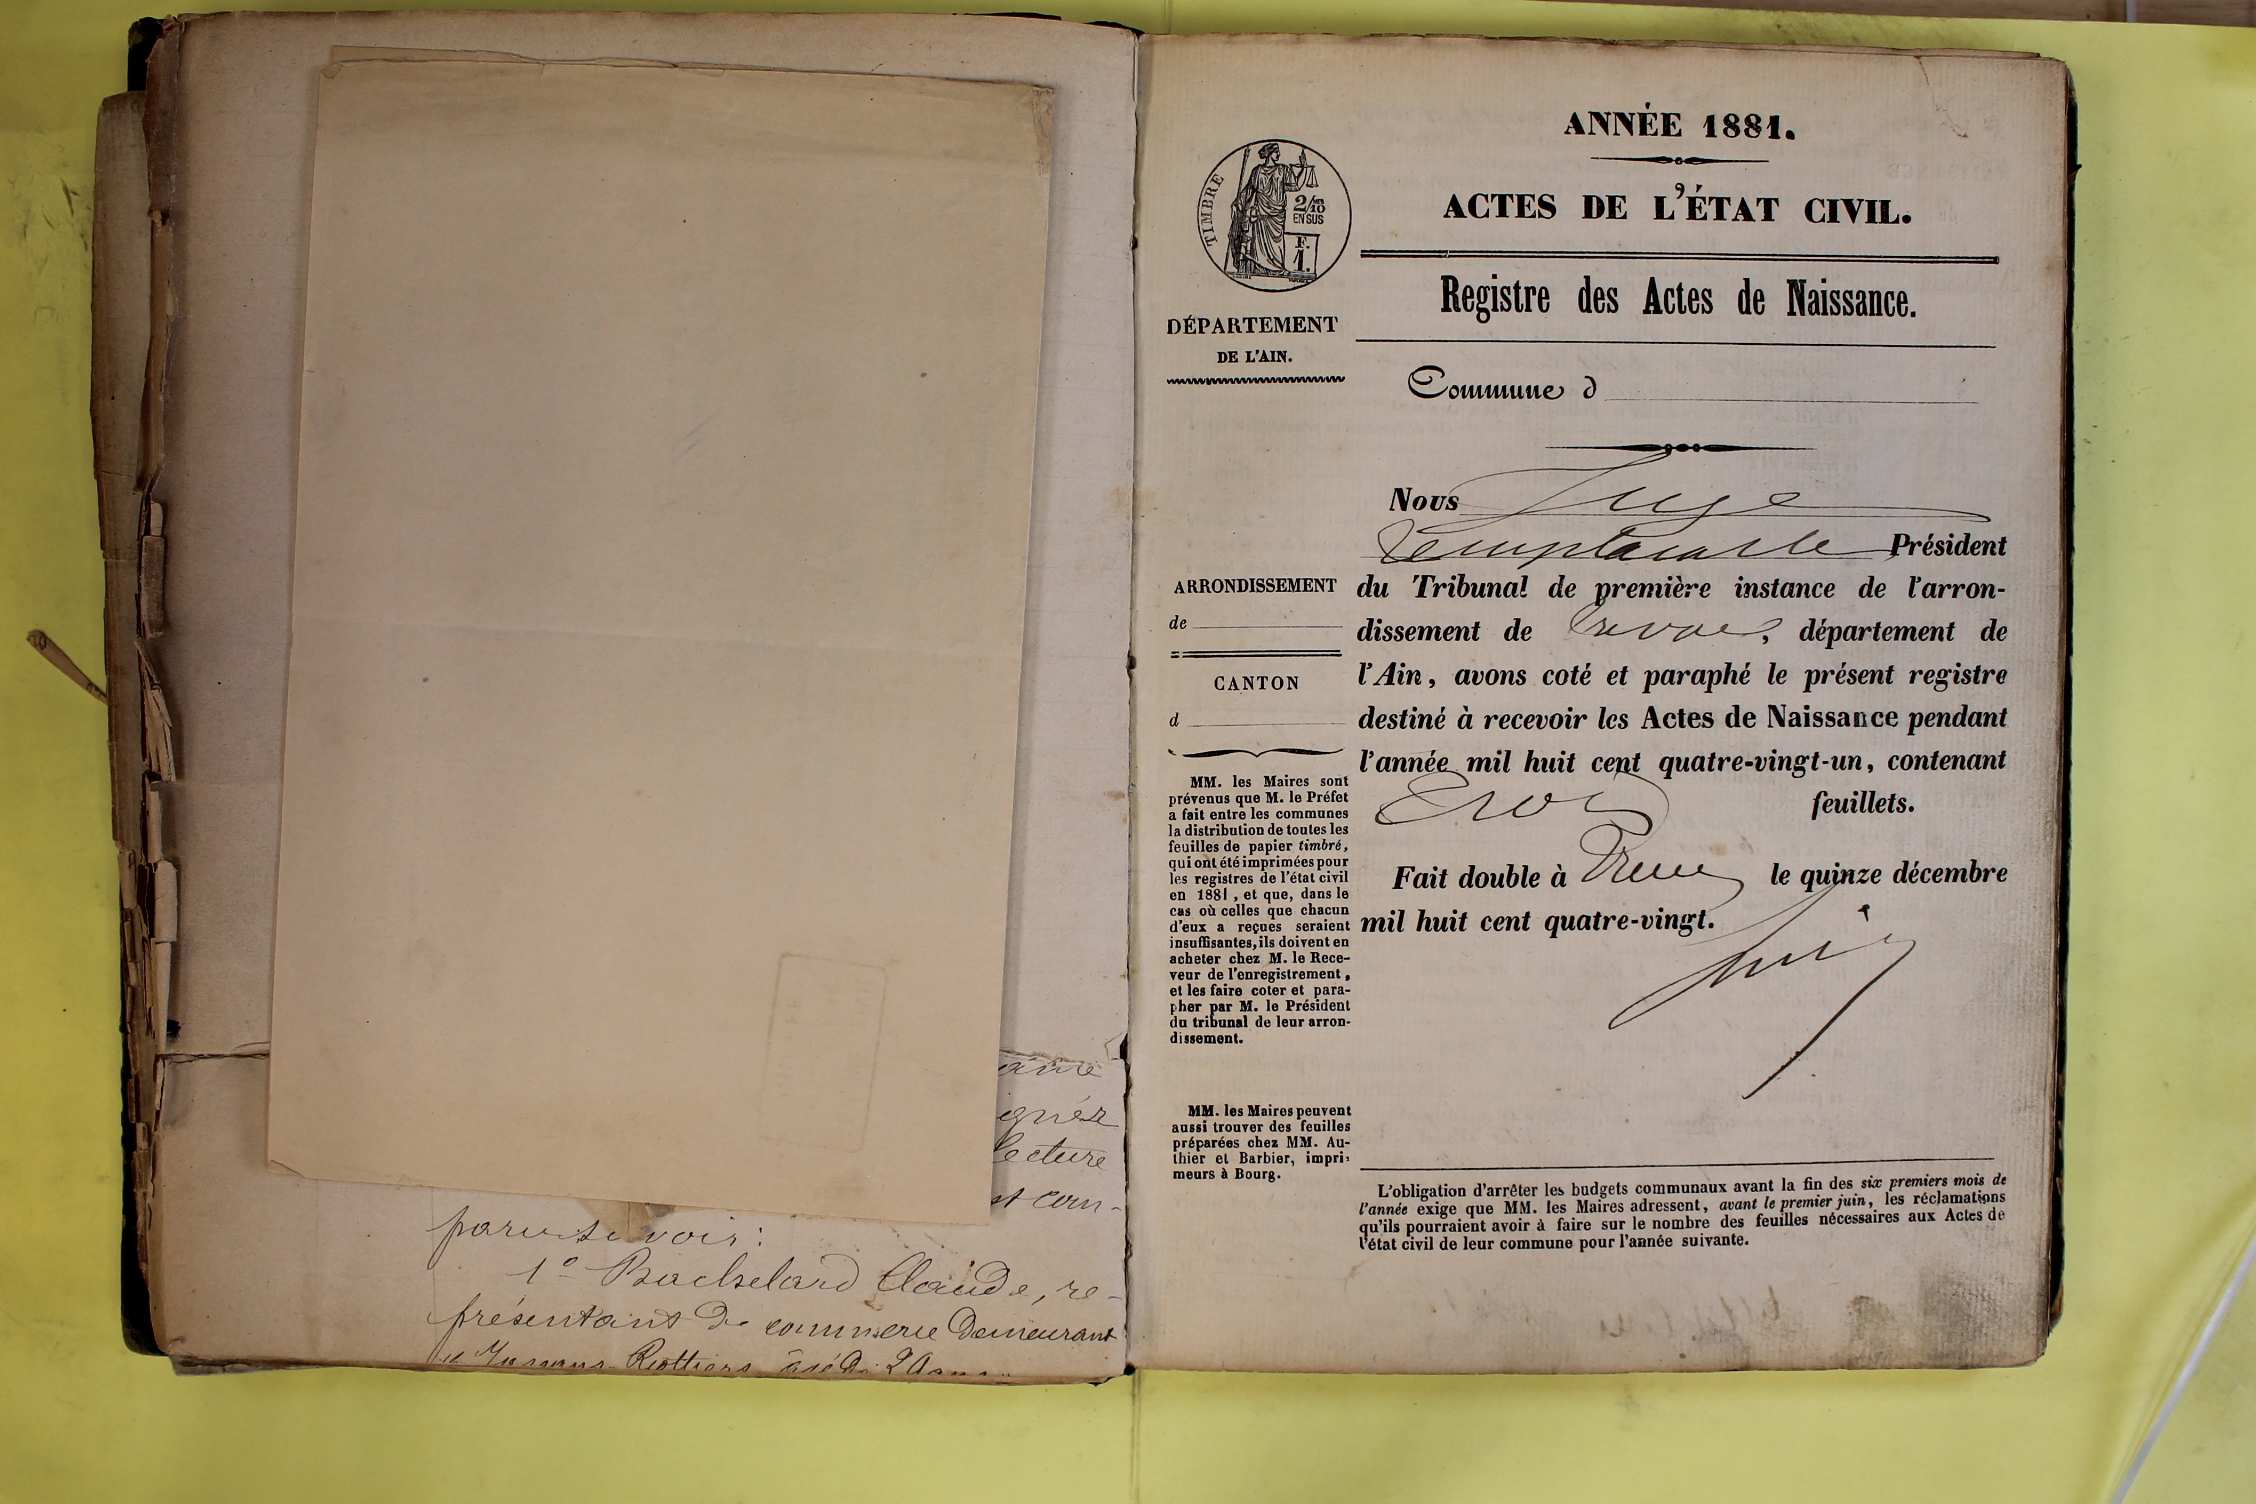 lecture
st com-
paru savoir :
1º Bachelard Claude, re-
présentant de commerce demeurant
TIMBRE
2/10 EN SUS
F. 1.
DÉPARTEMENT
DE L'AIN.
ARRONDISSEMENT
de
CANTON
d
MM. les Maires sont
prévenus que M. le Préfet
a fait entre les communes
la distribution de toutes les
feuilles de papier timbré,
qui ont été imprimées pour
les registres de l'état civil
en 1881, et que, dans le
cas où celles que chacun
d'eux a reçues seraient
insuffisantes, ils doivent en
acheter chez M. le Rece-
veur de l'enregistrement,
et les faire coter et para-
pher par M. le Président
du tribunal de leur arron-
dissement.
MM. les Maires peuvent
aussi trouver des feuilles
préparées chez MM. Au-
thier et Barbier, impri-
meurs à Bourg.
ANNÉE 1881.
ACTES DE L'ÉTAT CIVIL.
Registre des Actes de Naissance.
Commune d
Nous Juge
remplaçant le Président
du Tribunal de première instance de l'arron-
dissement de Trévoux, département de
l'Ain, avons coté et paraphé le présent registre
destiné à recevoir les Actes de Naissance pendant
l'année mil huit cent quatre-vingt-un, contenant
Trois feuillets.
Fait double à Trévoux le quinze décembre
mil huit cent quatre-vingt.
L'obligation d'arrêter les budgets communaux avant la fin des six premiers mois de
l'année exige que MM. les Maires adressent, avant le premier juin, les réclamations
qu'ils pourraient avoir à faire sur le nombre des feuilles nécessaires aux Actes de
l'état civil de leur commune pour l'année suivante.